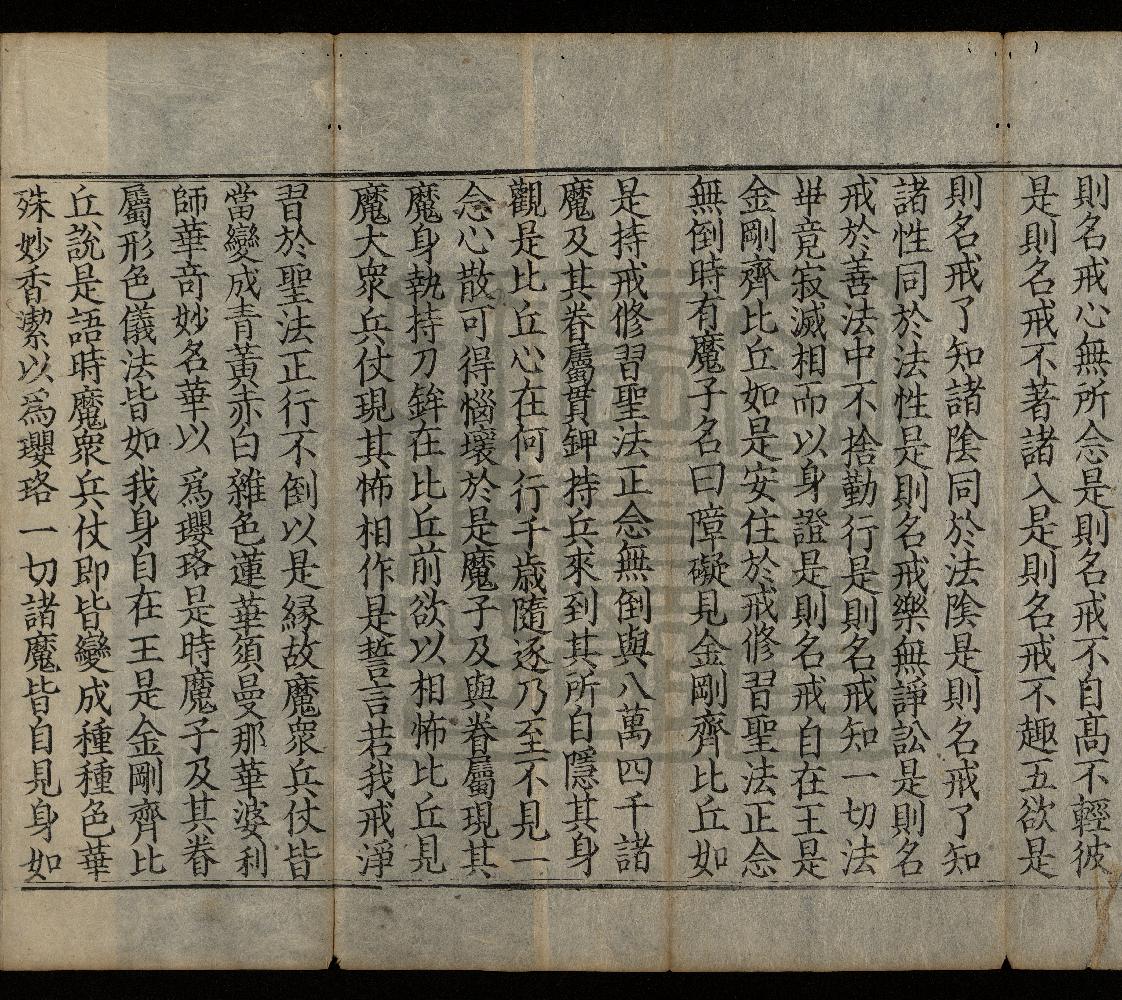 則名戒心無所念是則名戒不自髙不輕彼
是則名戒不著諸入是則名戒不趣五欲是
則名戒了知諸陰同於法陰是則名戒了知
諸性同於法性是則名戒樂無諍訟是則名
戒於善法中不捨勤行是則名戒知一切法
畢竟寂滅相而以身證是則名戒自在王是
金剛齊比丘如是安住於戒修習聖法正念
無倒時有魔子名曰障礙見金剛齊比丘如
是持戒修習聖法正念無倒與八萬四千諸
魔及其眷屬貫鉀持兵來到其所自隱其身
觀是比丘心在何行千歲隨逐乃至不見一
念心散可得惱壞於是魔子及與眷屬現其
魔身執持刀鉾在比丘前欲以相怖比丘見
魔大衆兵仗現其怖相作是誓言若我戒淨
習於聖法正行不倒以是縁故魔衆兵仗皆
當變成青黃赤白雜色蓮華須曼那華婆利
師華竒妙名華以爲瓔珞是時魔子及其眷
屬形色儀法皆如我身自在王是金剛齊比
丘說是語時魔衆兵仗即皆變成種種色華
殊妙香潔以爲瓔珞一切諸魔皆自見身如